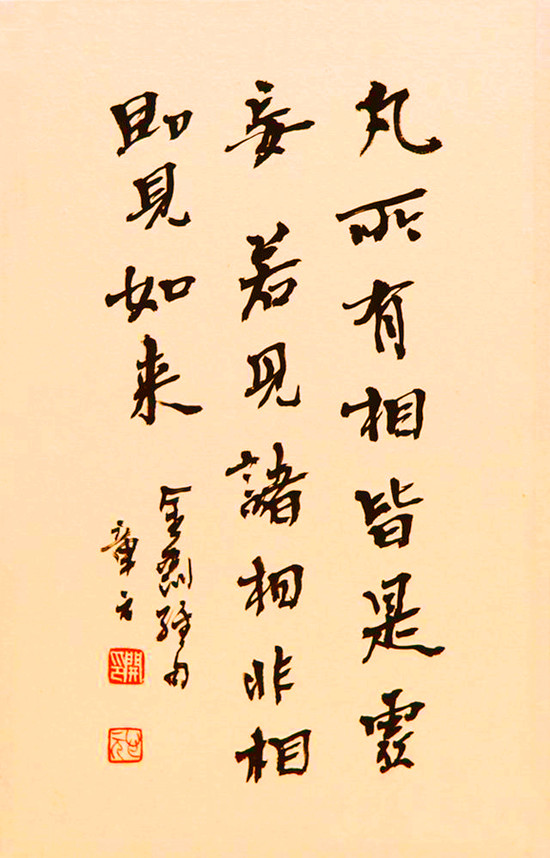 凡所有相皆是虛
妄若見諸相非相
即見如来
金剛經句